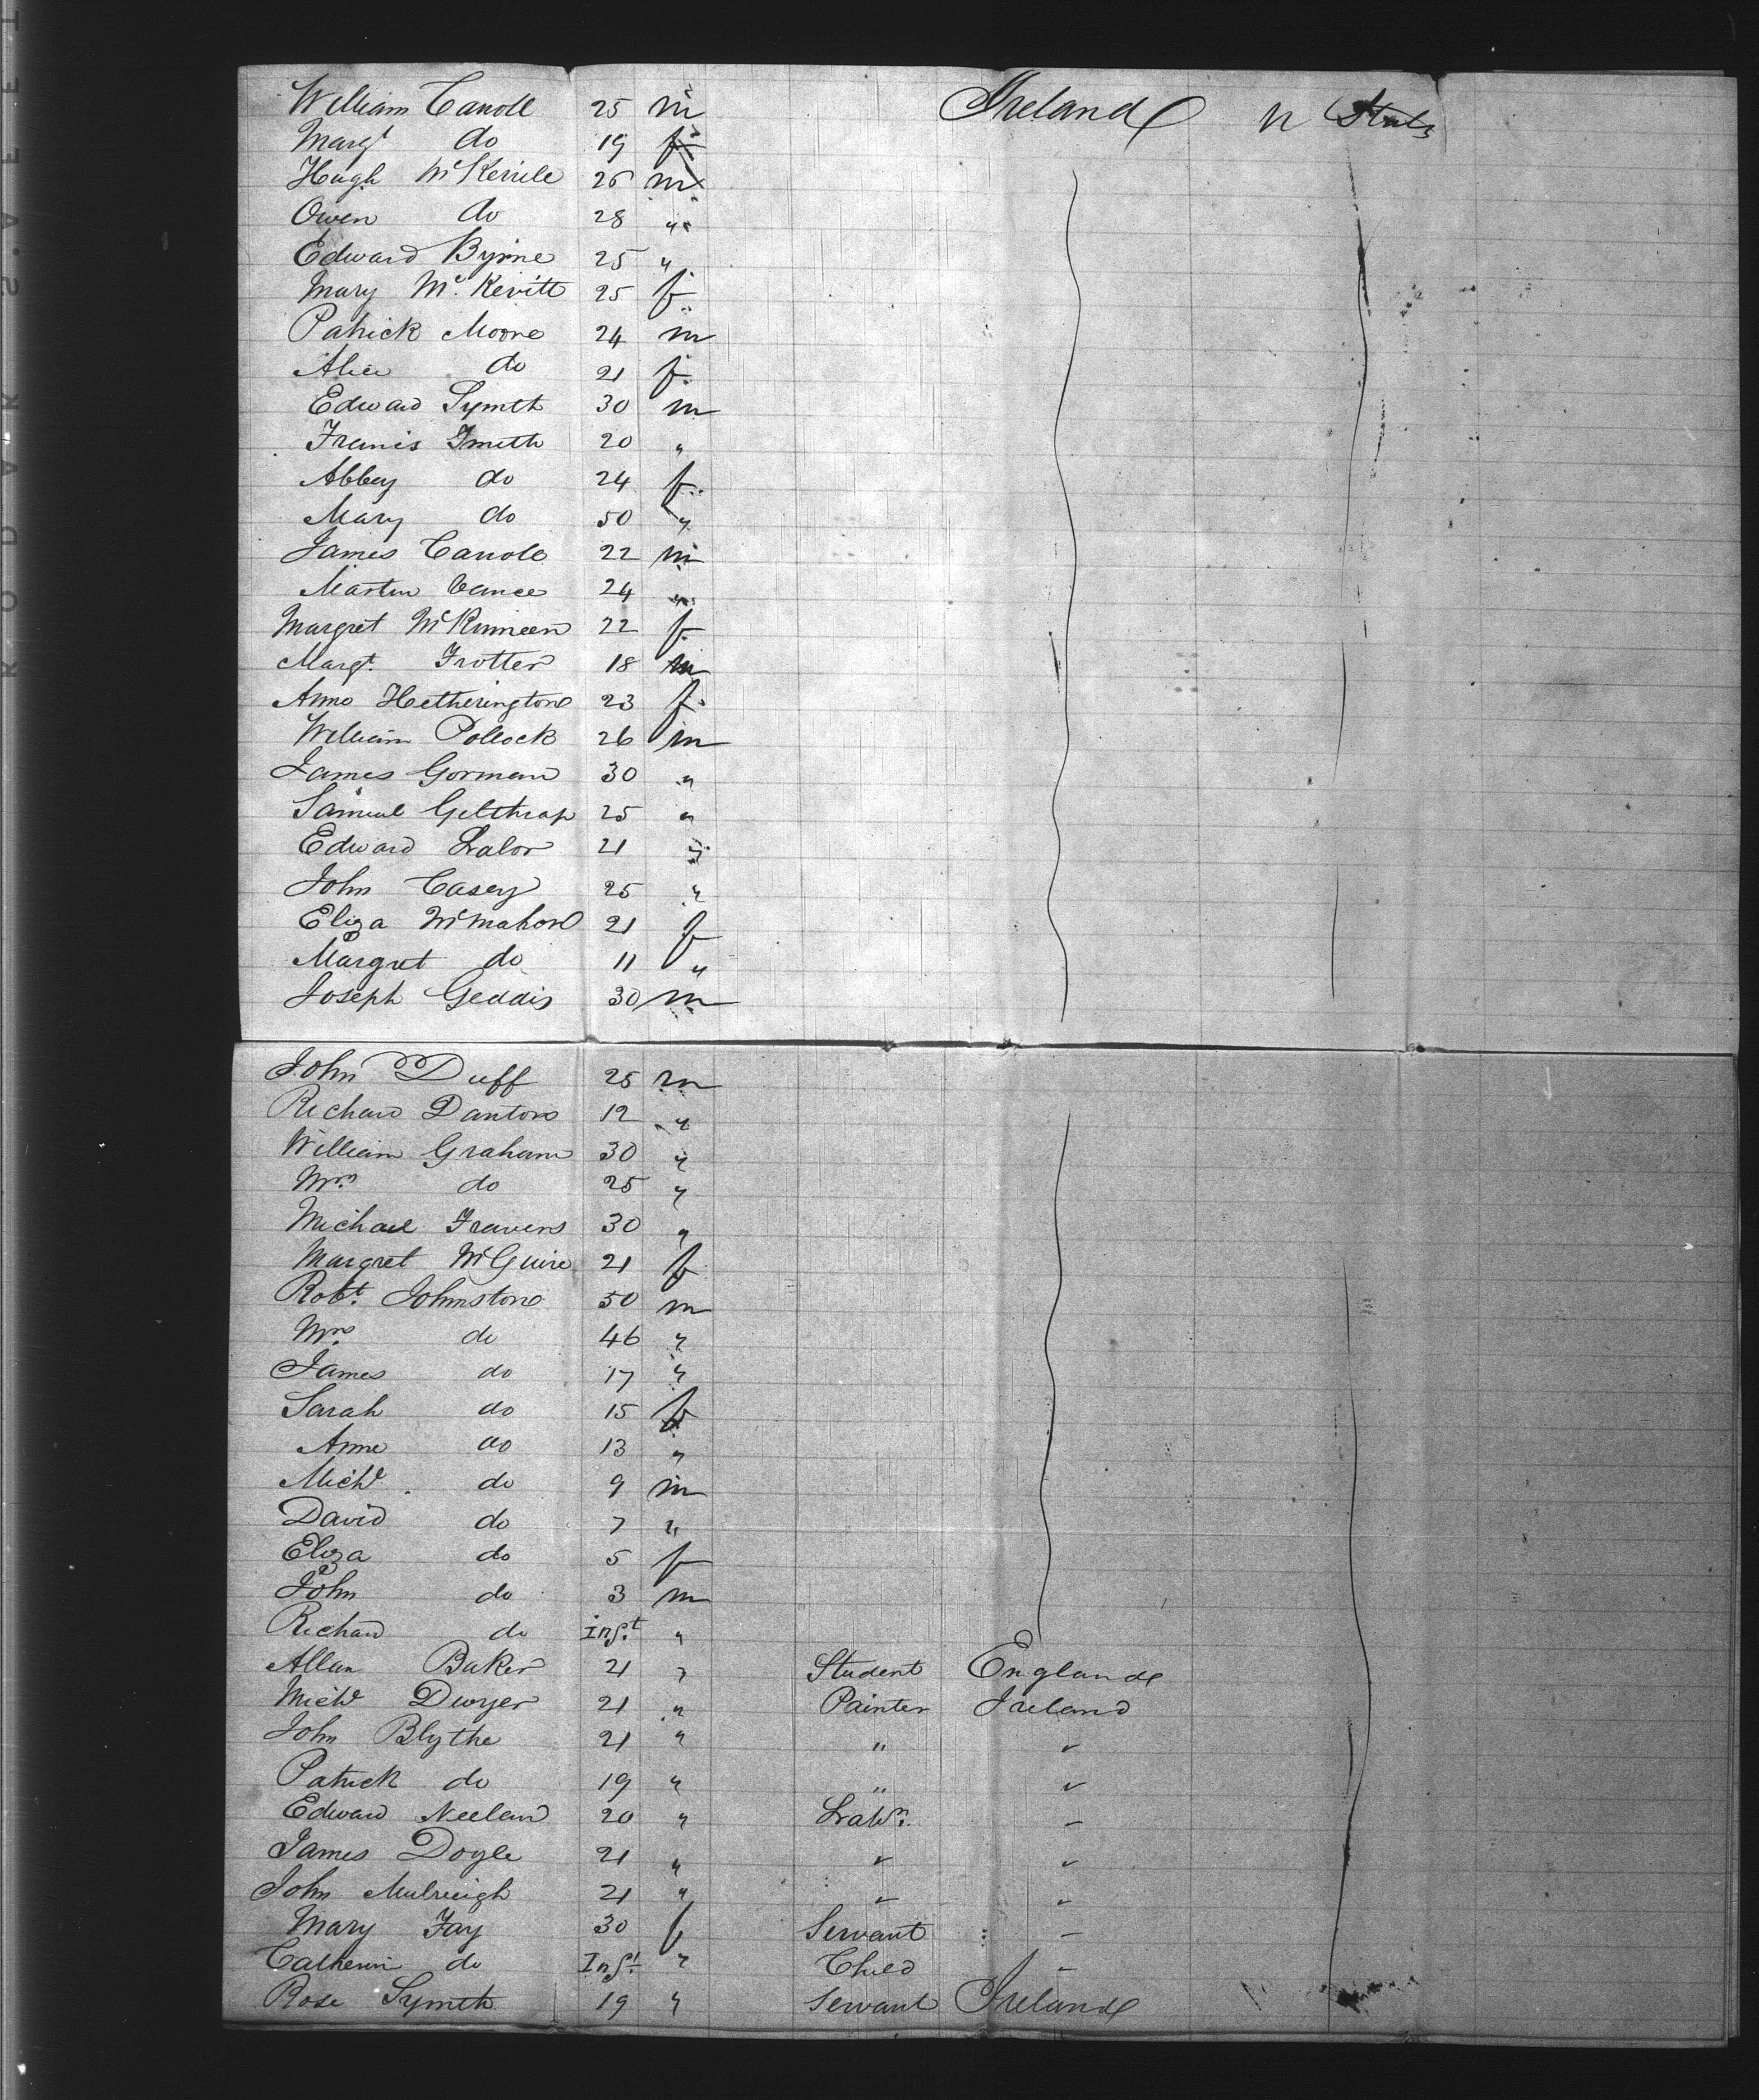 William Carroll 25 m Ireland U States
Margt do 19 f
Hugh McKevile 26 m
Owen do 28 "
Edward Byrne 25 "
Mary Mc.Kevitt 25 f
Patrick Moore 24 m
Alice do 21 f
Edward Symth 30 m
Francis Smith 20 "
Abbey do 24 f
Mary do 50 "
James Carrole 22 m
Martin Vance 24 "
Margret 22 f
Margt. Trotter 18 m
Anne Hetherington 23 f
William Pollock 26 m
James Gorman 30 "
Samuel Gilthrap 25 "
Edward Lalor 21 "
John Casey 25 "
Eliza McMahon 21 f
Margret do 11 "
Joseph Geddis 30 m
John Duff 25 m
Richard Danton 12 "
William Graham 30 "
Mrs. do 25 "
Michael Travers 30 "
Margret McGuire 21 f
Robt. Johnston 50 m
Mrs. do 46 "
James do 17 "
Sarah do 15 f
Anne do 13 "
Michl. do 9 m
David do 7 "
Eliza do 5 f
John do 3 m
Richard do Inft. "
Allan Baker 21 " Student England
Michl Dwyer 21 " Painter Ireland
John Blythe 21 " " "
Patrick do 19 " " "
Edward Neelan 20 " Labr. "
James Doyle 21 " " "
John 21 " " "
Mary Fay 30 f Servant "
Catherin do Inft. " Child "
Rose Symth 19 " Servant Ireland